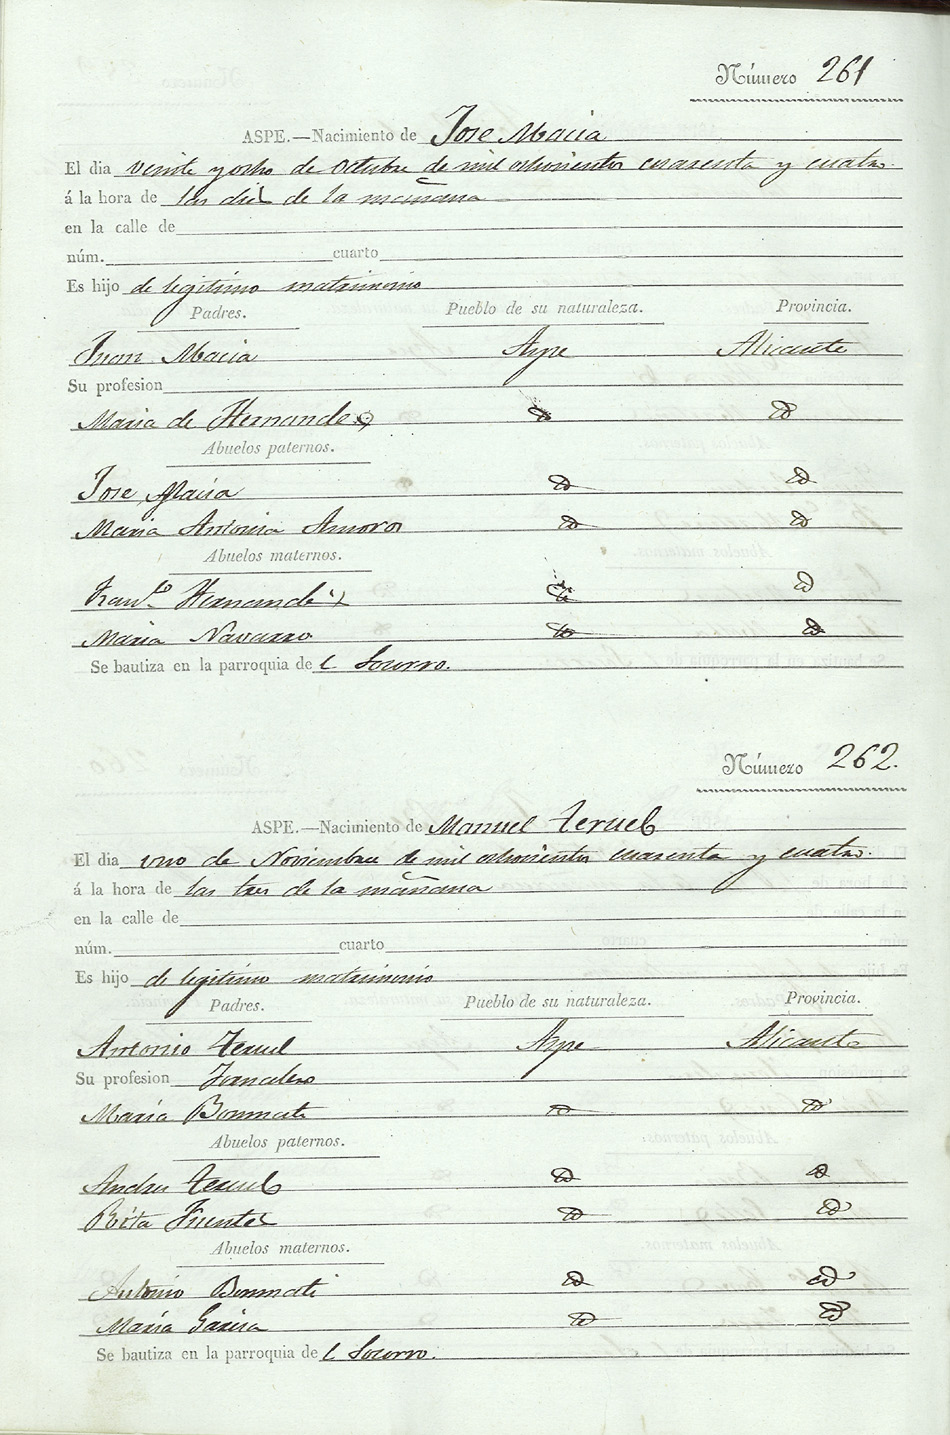 Número 261
ASPE.—Nacimiento de Jose Macia
El dia veinte y ocho de Octubre de mil ochocientos cuarenta y cuatro.
á la hora de las diez de la mañana
en la calle de
núm. cuarto
Es hijo de legitimo matrimonio
Padres. Pueblo de su naturaleza. Provincia.
Juan Macia Aspe Alicante
Su profesion
Maria de Hernandez
Abuelos paternos.
Jose Macia
Maria Antonia Amoros
Abuelos maternos.
Franco Hernandez
Maria Navarro
Se bautiza en la parroquia de l Socorro.
Número 262.
ASPE.—Nacimiento de Manuel Teruel
El dia uno de Noviembre de mil ochocientos cuarenta y cuatro.
á la hora de las tres de la mañana
en la calle de
núm. cuarto
Es hijo de legitimo matrimonio
Padres. Pueblo de su naturaleza. Provincia.
Antonio Teruel Aspe Alicante
Su profesion Jornalero
Maria Bonmati
Abuelos paternos.
Andres Teruel
Rita Fuentes
Abuelos maternos.
Antonio Bonmati
Maria Garcia
Se bautiza en la parroquia de l Socorro.